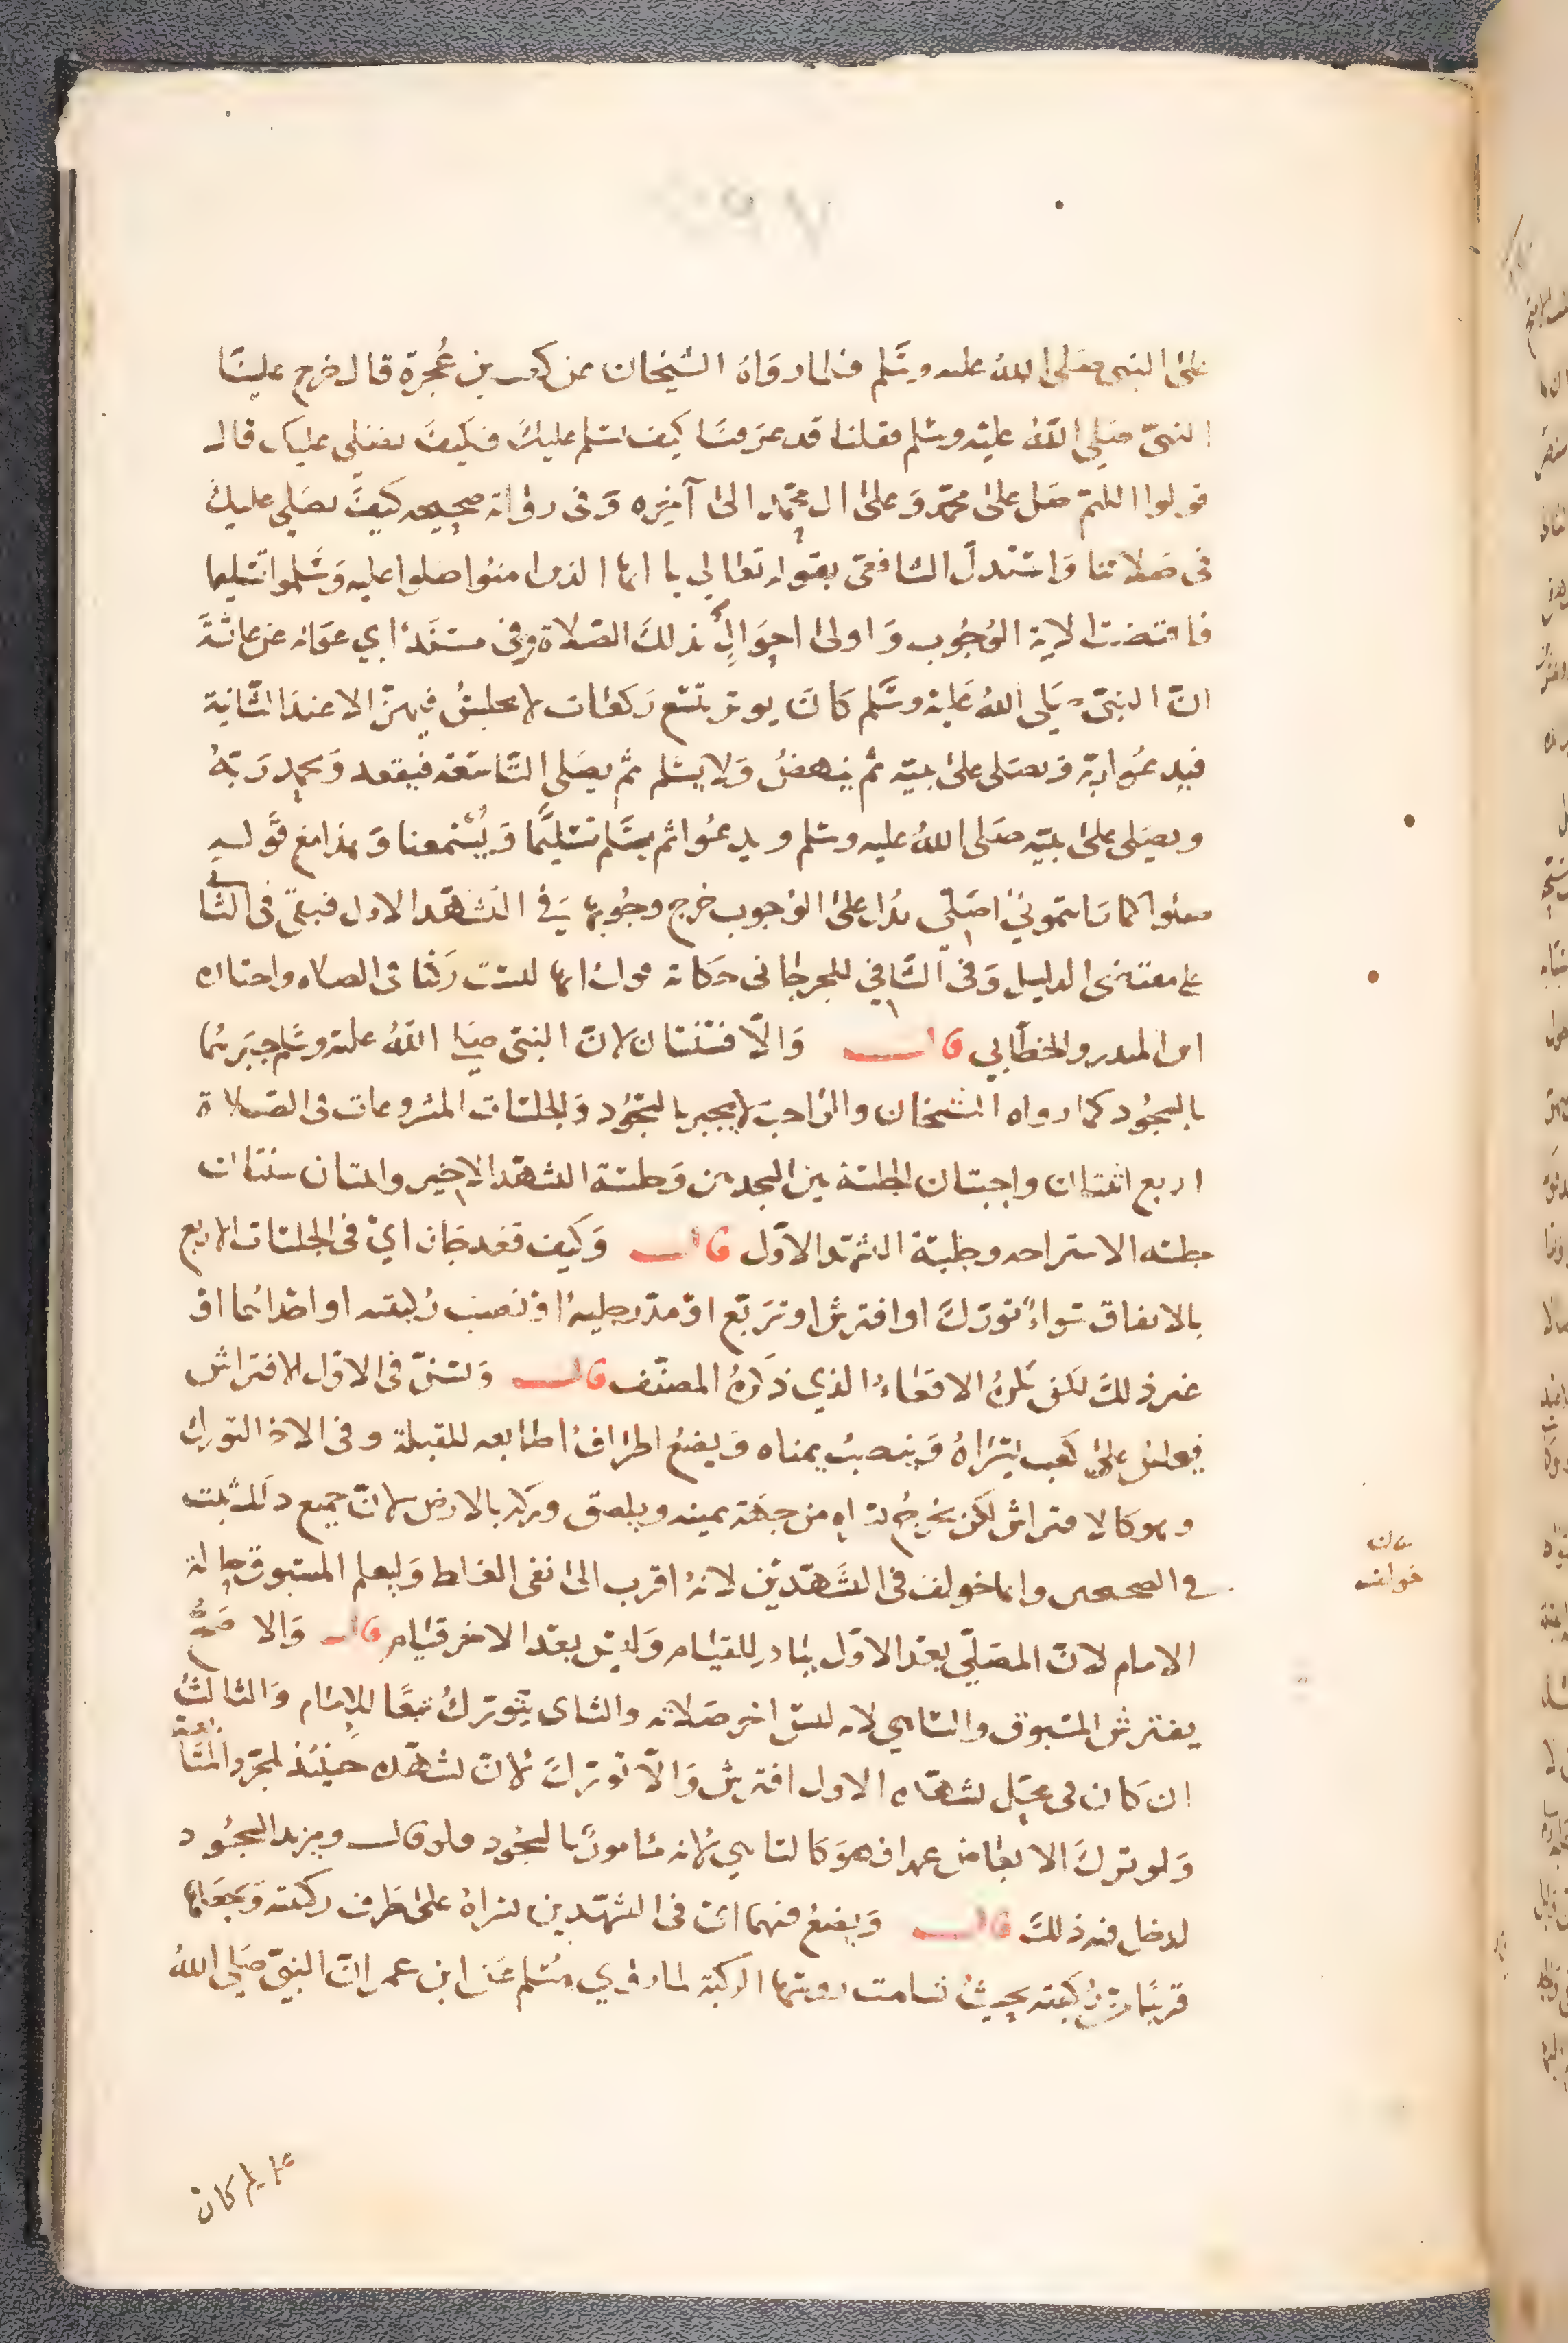 على النبي صلى الله عليه وسلم فلما رواه الشيخان عن كعب بن عُجرة قال خرج علينا
النبيّ صلى الله عليه وسلم فقلنا قد عرفنا كيف نسلم عليك فكيف نصلي عليك قال
قولوا اللهم صل على محمد وعلى ال محمد الى آخره وفى رواية صحيحه كيف نصلي عليك
فى صلاتنا واستدل الشافعى بقوله تعالى يا ايها الذين امنوا صلوا عليه وسلموا تسليما
فاقتضت الاية الوجوب واولى احوال ذلك الصلاة وفى مسند ابي عوانه عن عائشة
انّ النبيّ صلى الله عليه وسلم كان يوتر بتسع ركعات لا يجلس فيهن الا عند الثامنة
فيدعوا ربه ويصلى على نبيه ثم ينهض ولا يسلم ثم يصلى التاسعة فيقعد ويحمد ربهُ
ويصلى على نبيّه صلى الله عليه وسلم ويدعوا ثم يسلم تسليمًا ويُسمعنا وهذا مع قوله
صلوا كما رايتموني اصلي يدل على الوجوب خرج وجوبها فى التشهد الاول فبقى فى الثاني
على مقتضى الدليل وفى الشافي للجرجانى حكاية قول انها ليست ركنا فى الصلاه واختاره
ابن المنذر والخطابي قال والا فسنتان لان النبي صلى الله عليه وسلم جبرهما
بالسجود كما رواه الشيخان والواجب لا يجبر بالسجود والجلسات المشروعات فى الصلاة
اربع اثنتان واجبتان الجلسة بين السجدتين وجلسة التشهد الاخير واثنتان سنتان
جلسة الاستراحه وجلسة التشهد الاول قال وكيف قعد جاز اي فى الجلسات الاربع
بالاتفاق سواء تورك او افترش او تربع او مد رجليه او نصب ركبتيه او احداهما او
غير ذلك لكن يكره الاقعاء الذي ذكره المصنف قال ويسن فى الاول الافتراش
فيجلس على كعب يسراه وينصب يمناه ويضع اطراف اصابعه للقبلة وفى الاخر التورك
وهو كالافتراش لكن يخرج يسراه من جهة يمينه ويلصق وركه بالارض لان جميع ذلك ثبت
فى الصحيحين وانما خولف فى التشهدين لانه اقرب الى نفى الغلط وليعلم المسبوق حالة
الامام لان المصلي بعد الاول يبادر للقيام وليس بعد الاخر قيام قال والاصح
يفترش المسبوق والساهي لانه ليس اخر صلاته والثانى يتورك تبعًا للإمام والثالث
ان كان فى محل تشهده الاول افترش والا تورك لان تشهده حينئذ لمجرد المتابعة
ولو ترك الابعاض عمدا فهو كالساهي لانه مامور بالسجود فلو قال ويريد السجود
لدخل فيه ذلك قال ويضع فيهما اى فى التشهدين يسراه على طرف ركبته ويجعلها
قريبا من ركبته بحيث تسامت رءوسها الركبة لما روي مسلم عن ابن عمر ان النبيّ صلى الله
خولف